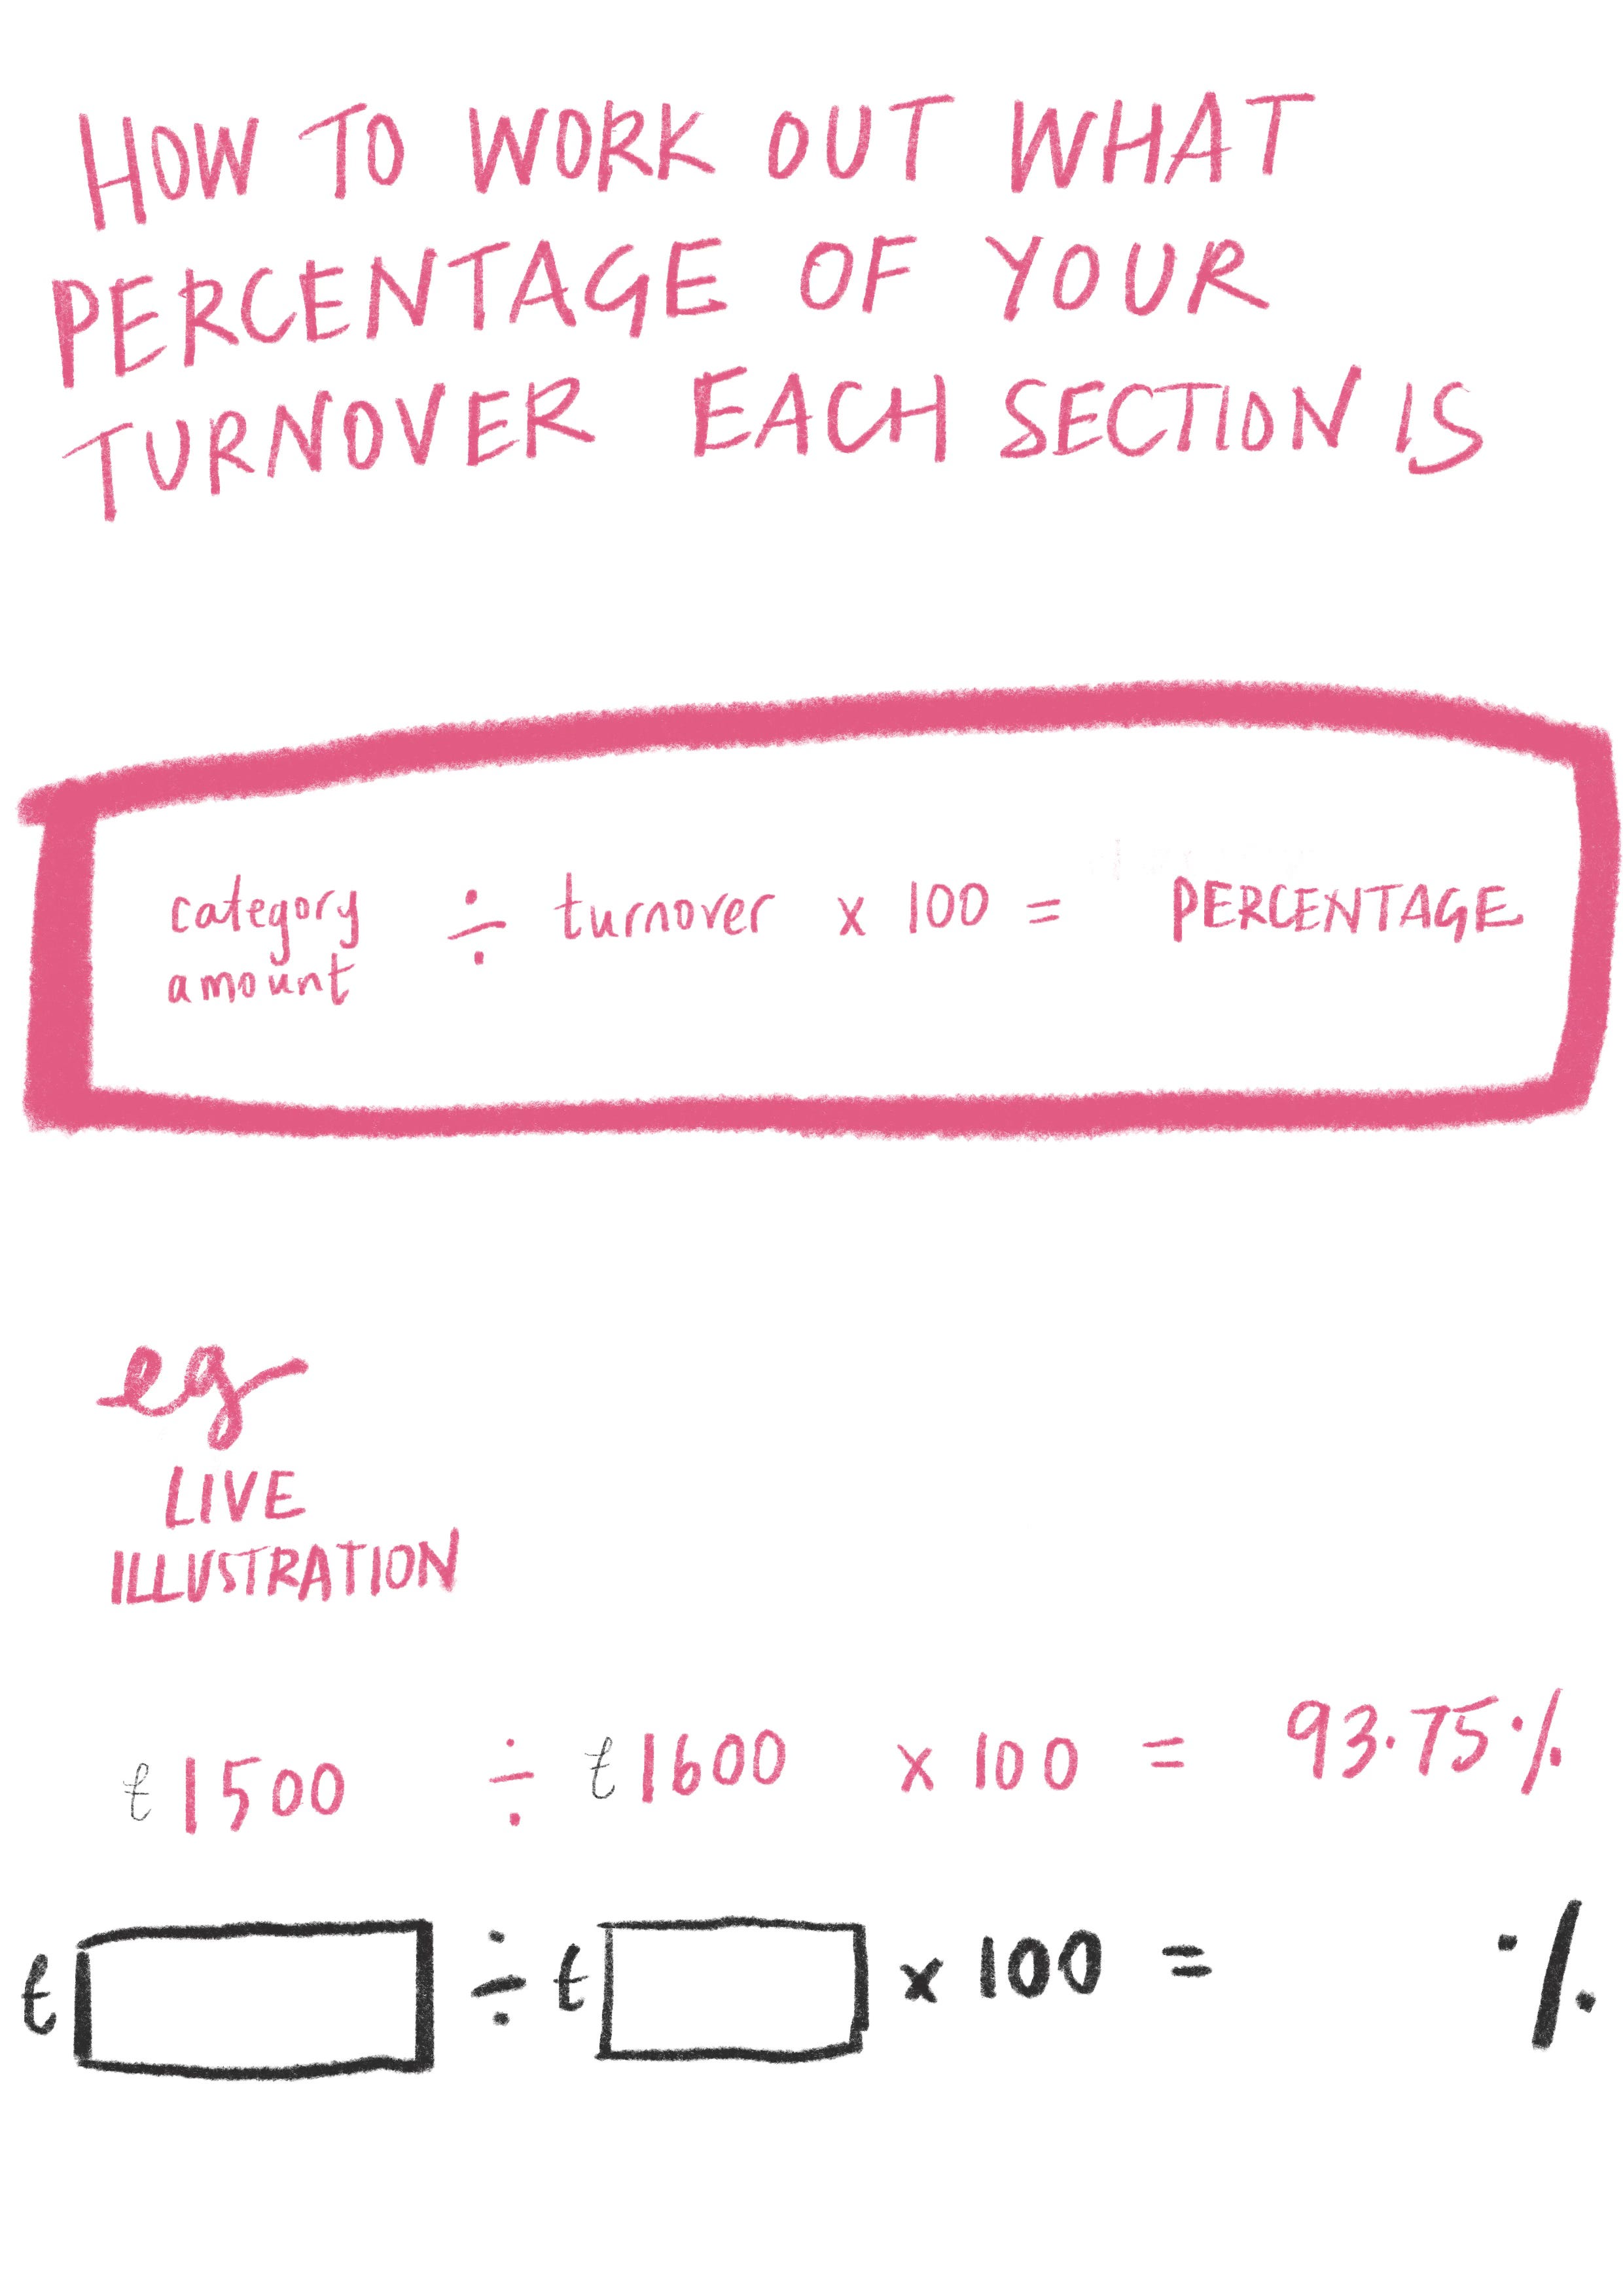 HOW TO WORK OUT WHAT
PERCENTAGE OF YOUR
TURNOVER EACH SECTION IS
category ÷ turnover x 100 = PERCENTAGE
amount
eg
LIVE
ILLUSTRATION
£1500 ÷ £1600 x 100 = 93.75%
£ ÷ £ x 100 = %